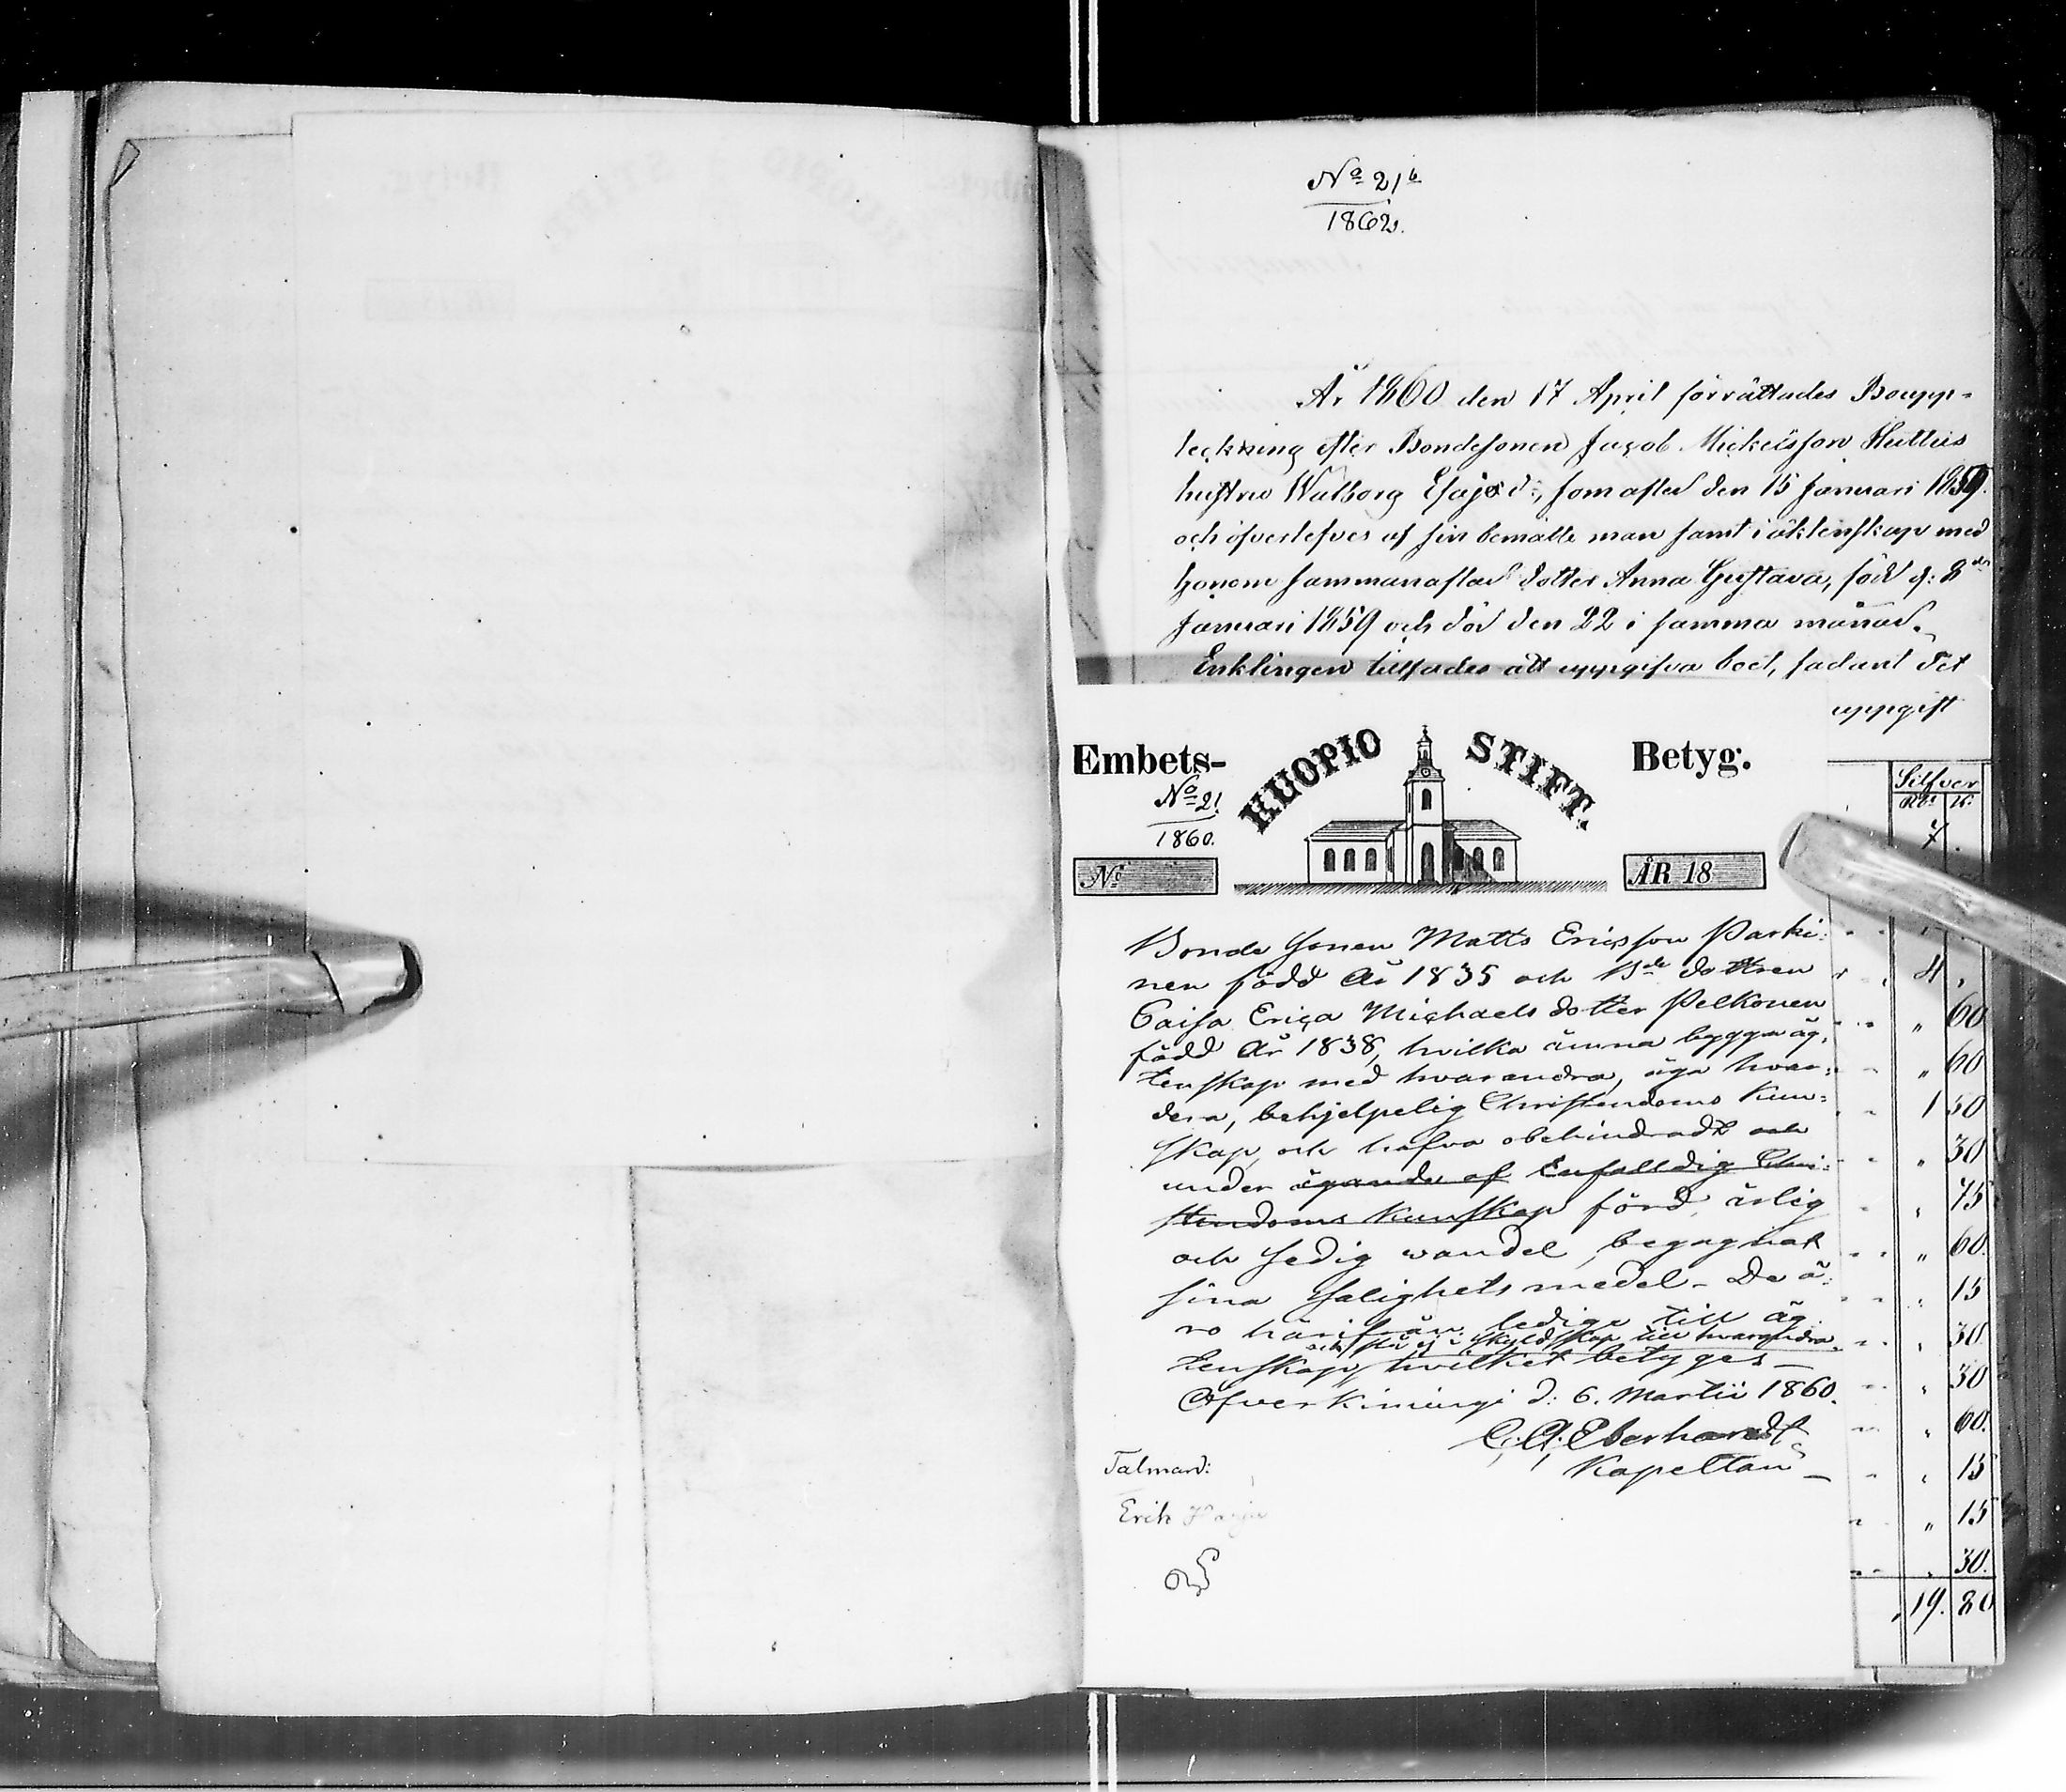 No 21b
1862.
År 1860 den 17 April förrättades Boupp-
teckning efter Bondesonen Jacob Mickelsson Huttus
hustru Walborg Esajæd:, som afled den 15 Januari 1859.
och öfverlefves af sin bemälte man samt i äktenskap med
honom sammanaflad dotter Anna Gustava, född d: 8de
Januari 1859 och död den 22 i samma månad.
Enklingen tillsades att uppgifva boet, sådant det
uppgift
Embets- KUOPIO STIFT. Betyg.
No 21
1860.
No ÅR 18
Silfver
Rbl K:
7 .
4 .
" 60
" 60
1 50
" 30
" 75
" 60.
" 15
" 30
" 30
" 60.
" 15
" 15
" 30.
19. 80
Bonde sonen Matts Ericsson Parki:
nen född År 1835 och Bde dottren
Caisa Erica Michaels dotter Pelkonen
född År 1838, hvilka ämna bygga äg,
tenskap med hvarandra, äga hvar:
dera, behjelpelig Christendoms kun:
skap, och hafva obehindradt och
under ägande af Enfalldig Chri:
stendoms kunskap förd, ärlig
och sedig wandel, begagnat
sina salighets medel - De ä:
ro härifrån ledige till äg.
och stå ej i skyldskap till hvarandra
tenskap, hvilket betyges -
Öfverkiminge d: 6. Martii 1860.
C. A. Eberhardt
Kapellan -
Talman:
Erik